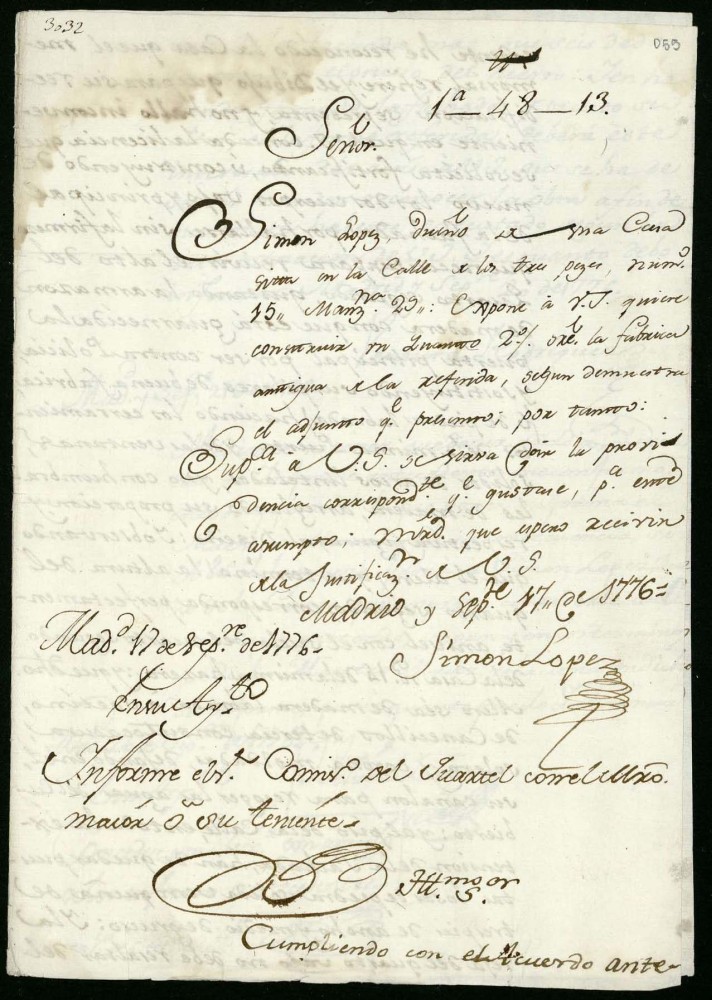 3032
055
1ª - 48 - 13.
Señor.
Simon Lopez, dueño de una Casa
sitta en la Calle de los tres pezes, num.º
15,, Manz.na 29,,: Expone à V.S. quiere
construir un Quarto 2.º sre. la fabrica
antigua de la referida, segun demuestra
el adjunto q.e presento; por tanto:
Sup.ca à V.S. se sirva dar la provi
dencia correspond.te q.e gustase, p.a este
asumpto; Mrd. que espero recivir
de la Justificaz.n de V.S.
Madrid y Sep.re 17,, de 1776=
Simon Lopez
Mad.d 17 de Sep.re de 1776.
En su Ay.to
Informe el S.r Comis.o del Quartel con el Mro.
maior ô su teniente.
Ill.mo S.or
Cumpliendo con el Acuerdo ante-